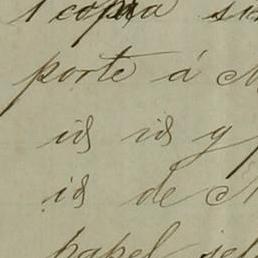 1 copia
porte á
id id y
id de
papel